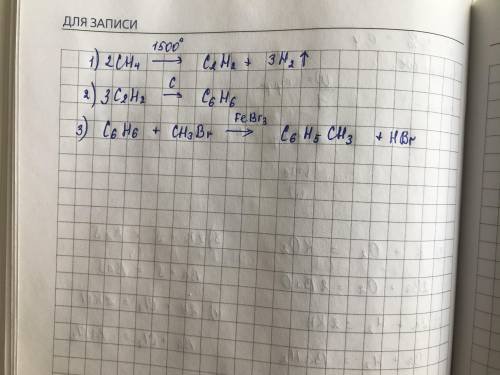 ДЛЯ ЗАПИСИ
1) 2CH₄ —1500°→ C₂H₂ + 3H₂↑
2) 3C₂H₂ —C→ C₆H₆
3) C₆H₆ + CH₃Br —FeBr₃→ C₆H₅CH₃ + HBr